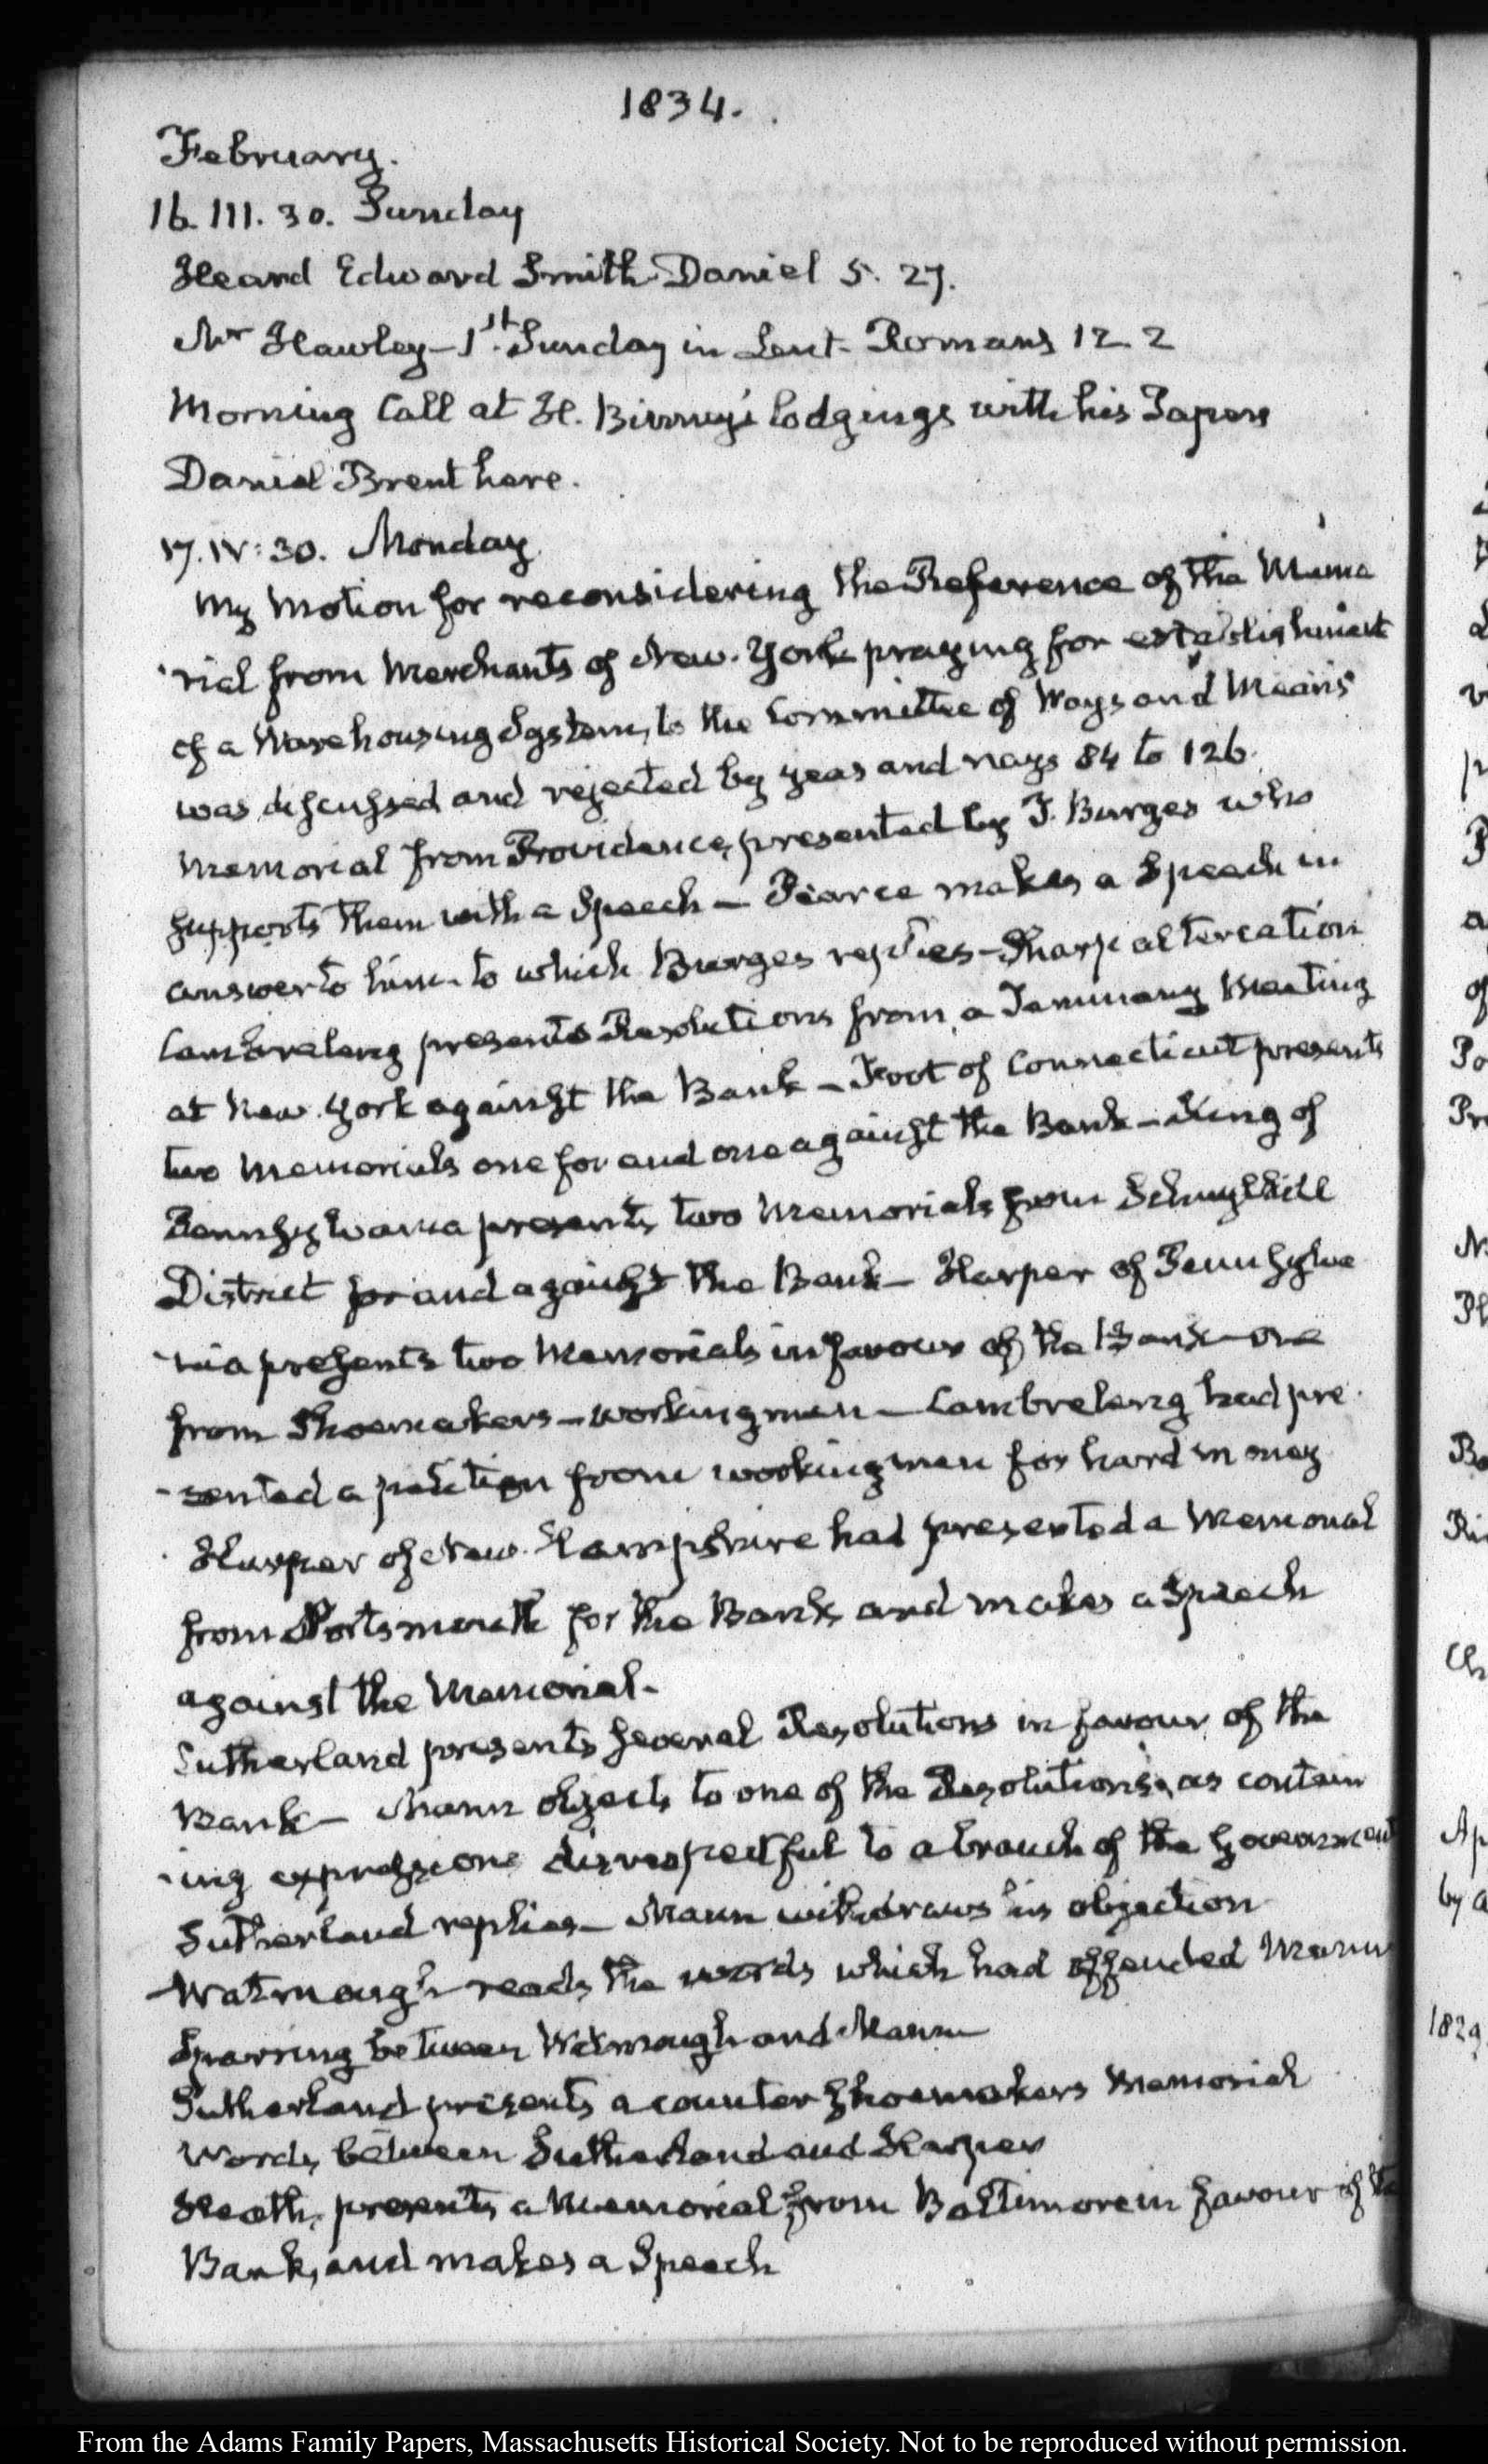 1834.
February.
16. III. 30. Sunday
Heard Edward Smith Daniel 5. 27.
Mr Hawley — 1st Sunday in Lent. Romans 12. 2
Morning Call at H. Binney's lodgings with his Papers
Daniel Brent here.
17. IV: 30. Monday
My Motion for reconsidering the Reference of the Memo
-rial from Merchants of New-York praying for establishment
of a Warehousing System, to the Committee of Ways and Means
was discussed and rejected by yeas and nays 84 to 126.
Memorial from Providence, presented by T. Burges who
supports them with a Speech — Pearce makes a Speech in
answer to him. to which Burges replies — Sharp altercation
Cambreleng presents Resolutions from a Tammany Meeting
at New-York against the Bank — Foot of Connecticut presents
two Memorials one for and one against the Bank — King of
Pennsylvania presents two Memorials from Schuylkill
District for and against the Bank — Harper of Pennsylva
-nia presents two Memorials in favour of the Bank — one
from Shoemakers — working men — Cambreleng had pre
-sented a petition from working men for hard money
Harper of New-Hampshire had presented a Memorial
from Portsmouth for the Bank and makes a Speech
against the Memorial.
Sutherland presents several Resolutions in favour of the
Bank — Mann objects to one of the Resolutions, as contain
-ing expressions disrespectful to a branch of the Government
Sutherland replies — Mann withdraws his objection
Watmough reads the words which had offended Mann
Sparring between Watmough and Mann
Sutherland presents a counter Shoemakers Memorial
Words between Sutherland and Harper
Heath, presents a Memorial from Baltimore in favour of the
Bank, and makes a Speech
From the Adams Family Papers, Massachusetts Historical Society. Not to be reproduced without permission.